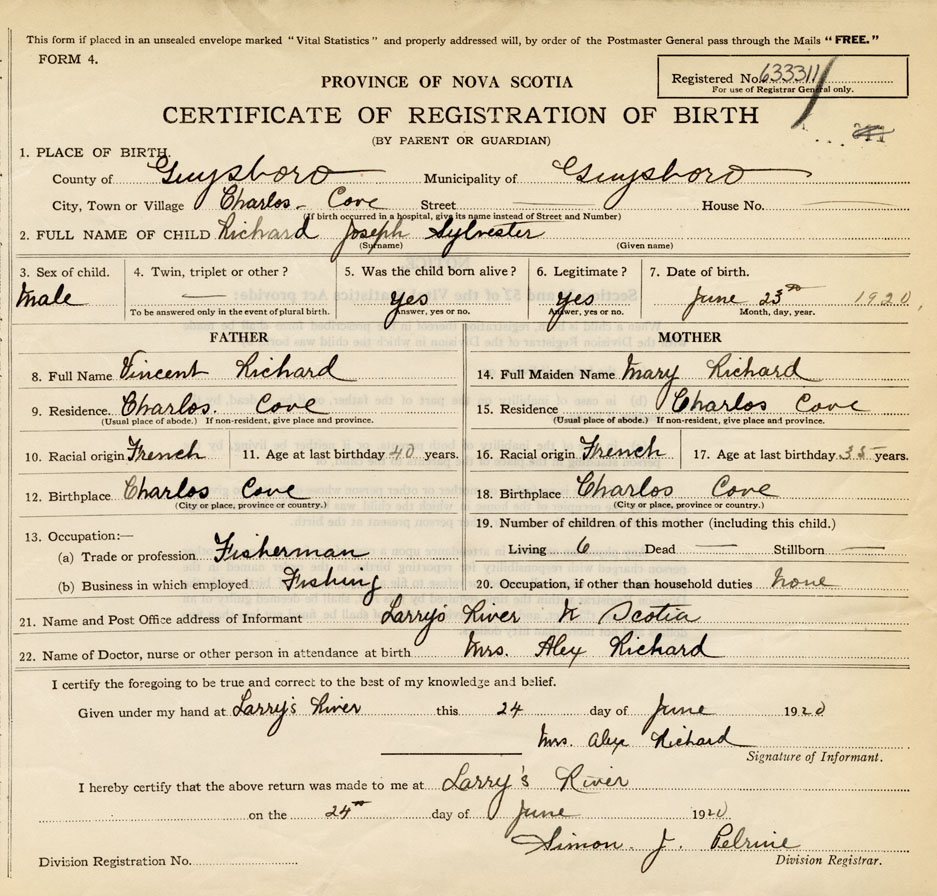 This form if placed in an unsealed envelope marked "Vital Statistics" and properly addressed will, by order of the Postmaster General pass through the Mails "FREE."
FORM 4.
Registered No. 633311
For use of Registrar General only.
PROVINCE OF NOVA SCOTIA
CERTIFICATE OF REGISTRATION OF BIRTH
(BY PARENT OR GUARDIAN)
1. PLACE OF BIRTH.
County of Guysboro Municipality of Guysboro
City, Town or Village Charlos Cove Street House No.
(If birth occurred in a hospital, give its name instead of Street and Number)
2. FULL NAME OF CHILD Richard Joseph Sylvester
(Surname) (Given name)
3. Sex of child. 4. Twin, triplet or other? 5. Was the child born alive? 6. Legitimate? 7. Date of birth.
Male — Yes Yes June 23rd 1920
To be answered only in the event of plural birth. Answer, yes or no. Answer, yes or no. Month, day, year.
FATHER MOTHER
8. Full Name Vincent Richard 14. Full Maiden Name Mary Richard
9. Residence Charlos Cove 15. Residence Charlos Cove
(Usual place of abode.) If non-resident, give place and province. (Usual place of abode.) If non-resident, give place and province.
10. Racial origin French 11. Age at last birthday 40 years. 16. Racial origin French 17. Age at last birthday 35 years.
12. Birthplace Charlos Cove 18. Birthplace Charlos Cove
(City or place, province or country.) (City or place, province or country.)
13. Occupation:— 19. Number of children of this mother (including this child.)
(a) Trade or profession Fisherman Living 6 Dead — Stillborn —
(b) Business in which employed Fishing 20. Occupation, if other than household duties None
21. Name and Post Office address of Informant Larry's River N Scotia
22. Name of Doctor, nurse or other person in attendance at birth Mrs. Alex Richard
I certify the foregoing to be true and correct to the best of my knowledge and belief.
Given under my hand at Larry's River this 24 day of June 1920
Mrs. Alex Richard
Signature of Informant.
I hereby certify that the above return was made to me at Larry's River
on the 24th day of June 1920
Simon J. Pelrine
Division Registrar.
Division Registration No.